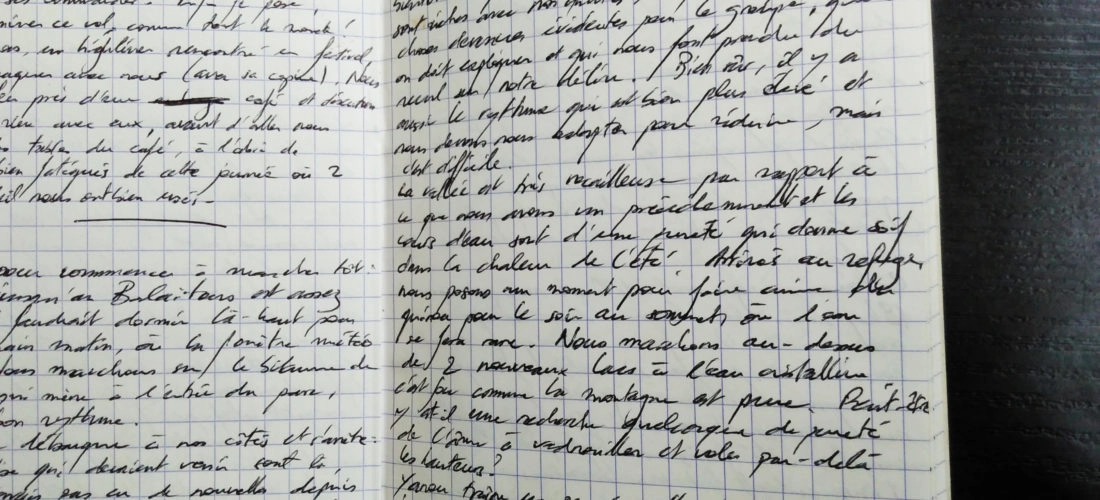 mener ce vol, comme tout le monde!
rencontré en festival,
avec nous (avec sa copine). Nous
près d'un café et discutons
avec eux, avant d'aller nous
tables du café, à l'abri de
bien fatigués de cette journée où 2
nous ont bien usés.
pour commencer à marcher tôt:
jusqu'au Balaïtous est assez
faudrait dormir là-haut pour
matin, où la fenêtre météo
Nous marchons sur le bitume de
qui mène à l'entrée du parc,
bon rythme.
débarque à nos côtés et s'arrête:
qui devaient venir sont là,
pas eu de nouvelles depuis
sont riches avec
choses devenues évidentes pour le groupe, que
on doit expliquer et qui nous font prendre du
recul sur notre délire. Bien sûr, il y a
aussi le rythme qui est bien plus élevé et
nous devons nous adapter pour réduire, mais
c'est difficile.
La vallée est très rocailleuse par rapport à
ce que nous avons vu précédemment et les
cours d'eau sont d'une pureté qui donne soif
dans la chaleur de l'été. Arrivés au refuge,
nous posons un moment pour faire cuire du
quinoa pour le soir au sommet, où l'eau
se fera rare. Nous marchons au-dessus
de 2 nouveaux lacs à l'eau cristalline
c'est fou comme la montagne est pure. Peut-être
y a-t-il une recherche quelconque de pureté
de l'âme à vadrouiller et voler par-delà
les hauteurs?